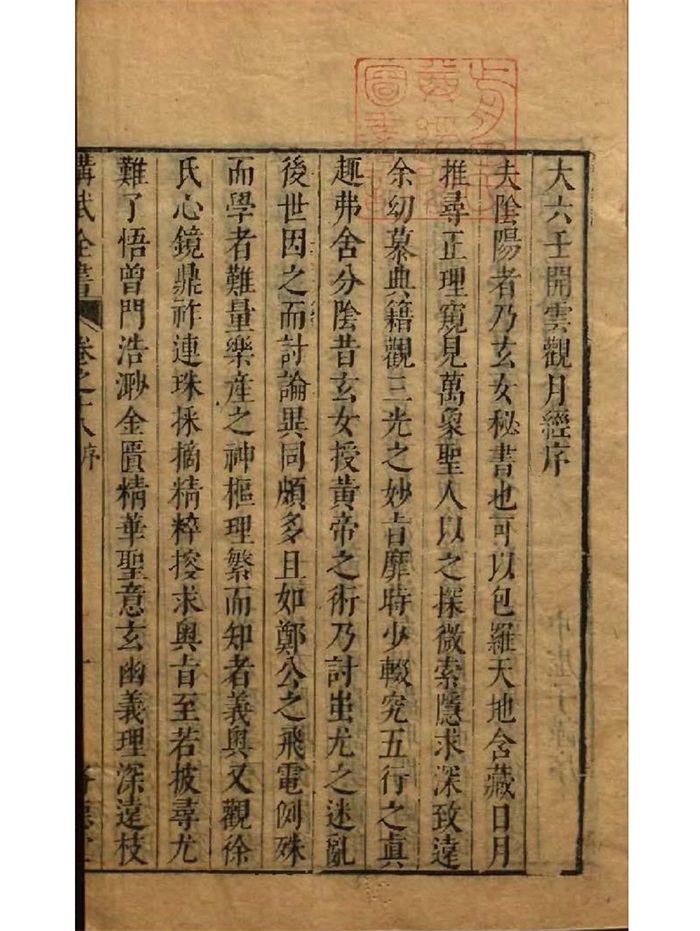 大六壬開雲觀月經序
夫陰陽者乃玄女秘書也可以包羅天地含藏日月
推尋正理窺見萬象聖人以之探微索隱求深致遠
余幼慕典籍觀三光之妙旨靡時少輟究五行之真
趣弗舍分陰昔玄女授黄帝之術乃討蚩尤之迷亂
後世因之而討論異同頗多且如鄭公之飛電例殊
而學者難量樂産之神樞理繁而知者義奥又觀徐
氏心鏡鼎祚連珠採摘精粹搜求奥旨至若披尋尤
難了悟曾門浩渺金匱精華聖意玄幽義理深遠枝
講武全書 卷之十八序